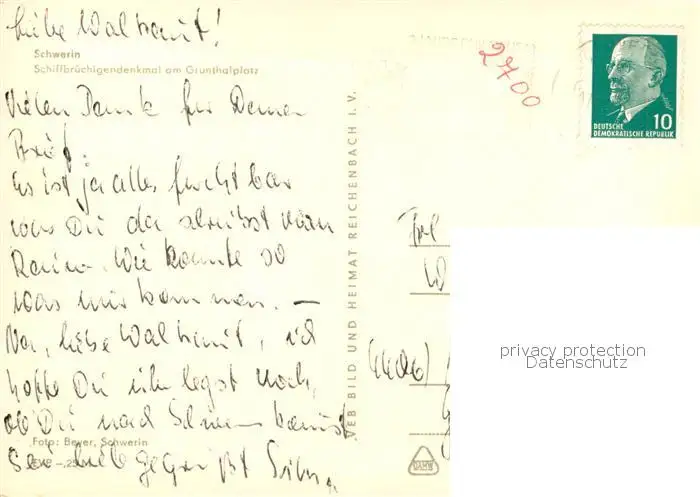 Liebe Waltraut!
Schwerin
Schiffbrüchigendenkmal am Grunthalplatz
Vielen Dank für Deinen
Brief.
Es ist ja alles furchtbar
was Du da schreibst vom
Rainer. Wie konnte so
was nur kommen. —
Na, liebe Waltraut, ich
hoffe Du überlegst noch,
ob Du nach Schwerin kannst
Foto: Beyer, Schwerin
Sei lieb gegrüßt
EVP –,25 M
VEB BILD UND HEIMAT REICHENBACH I. V.
2700
10
DEUTSCHE
DEMOKRATISCHE REPUBLIK
Frl
W
privacy protection
Datenschutz